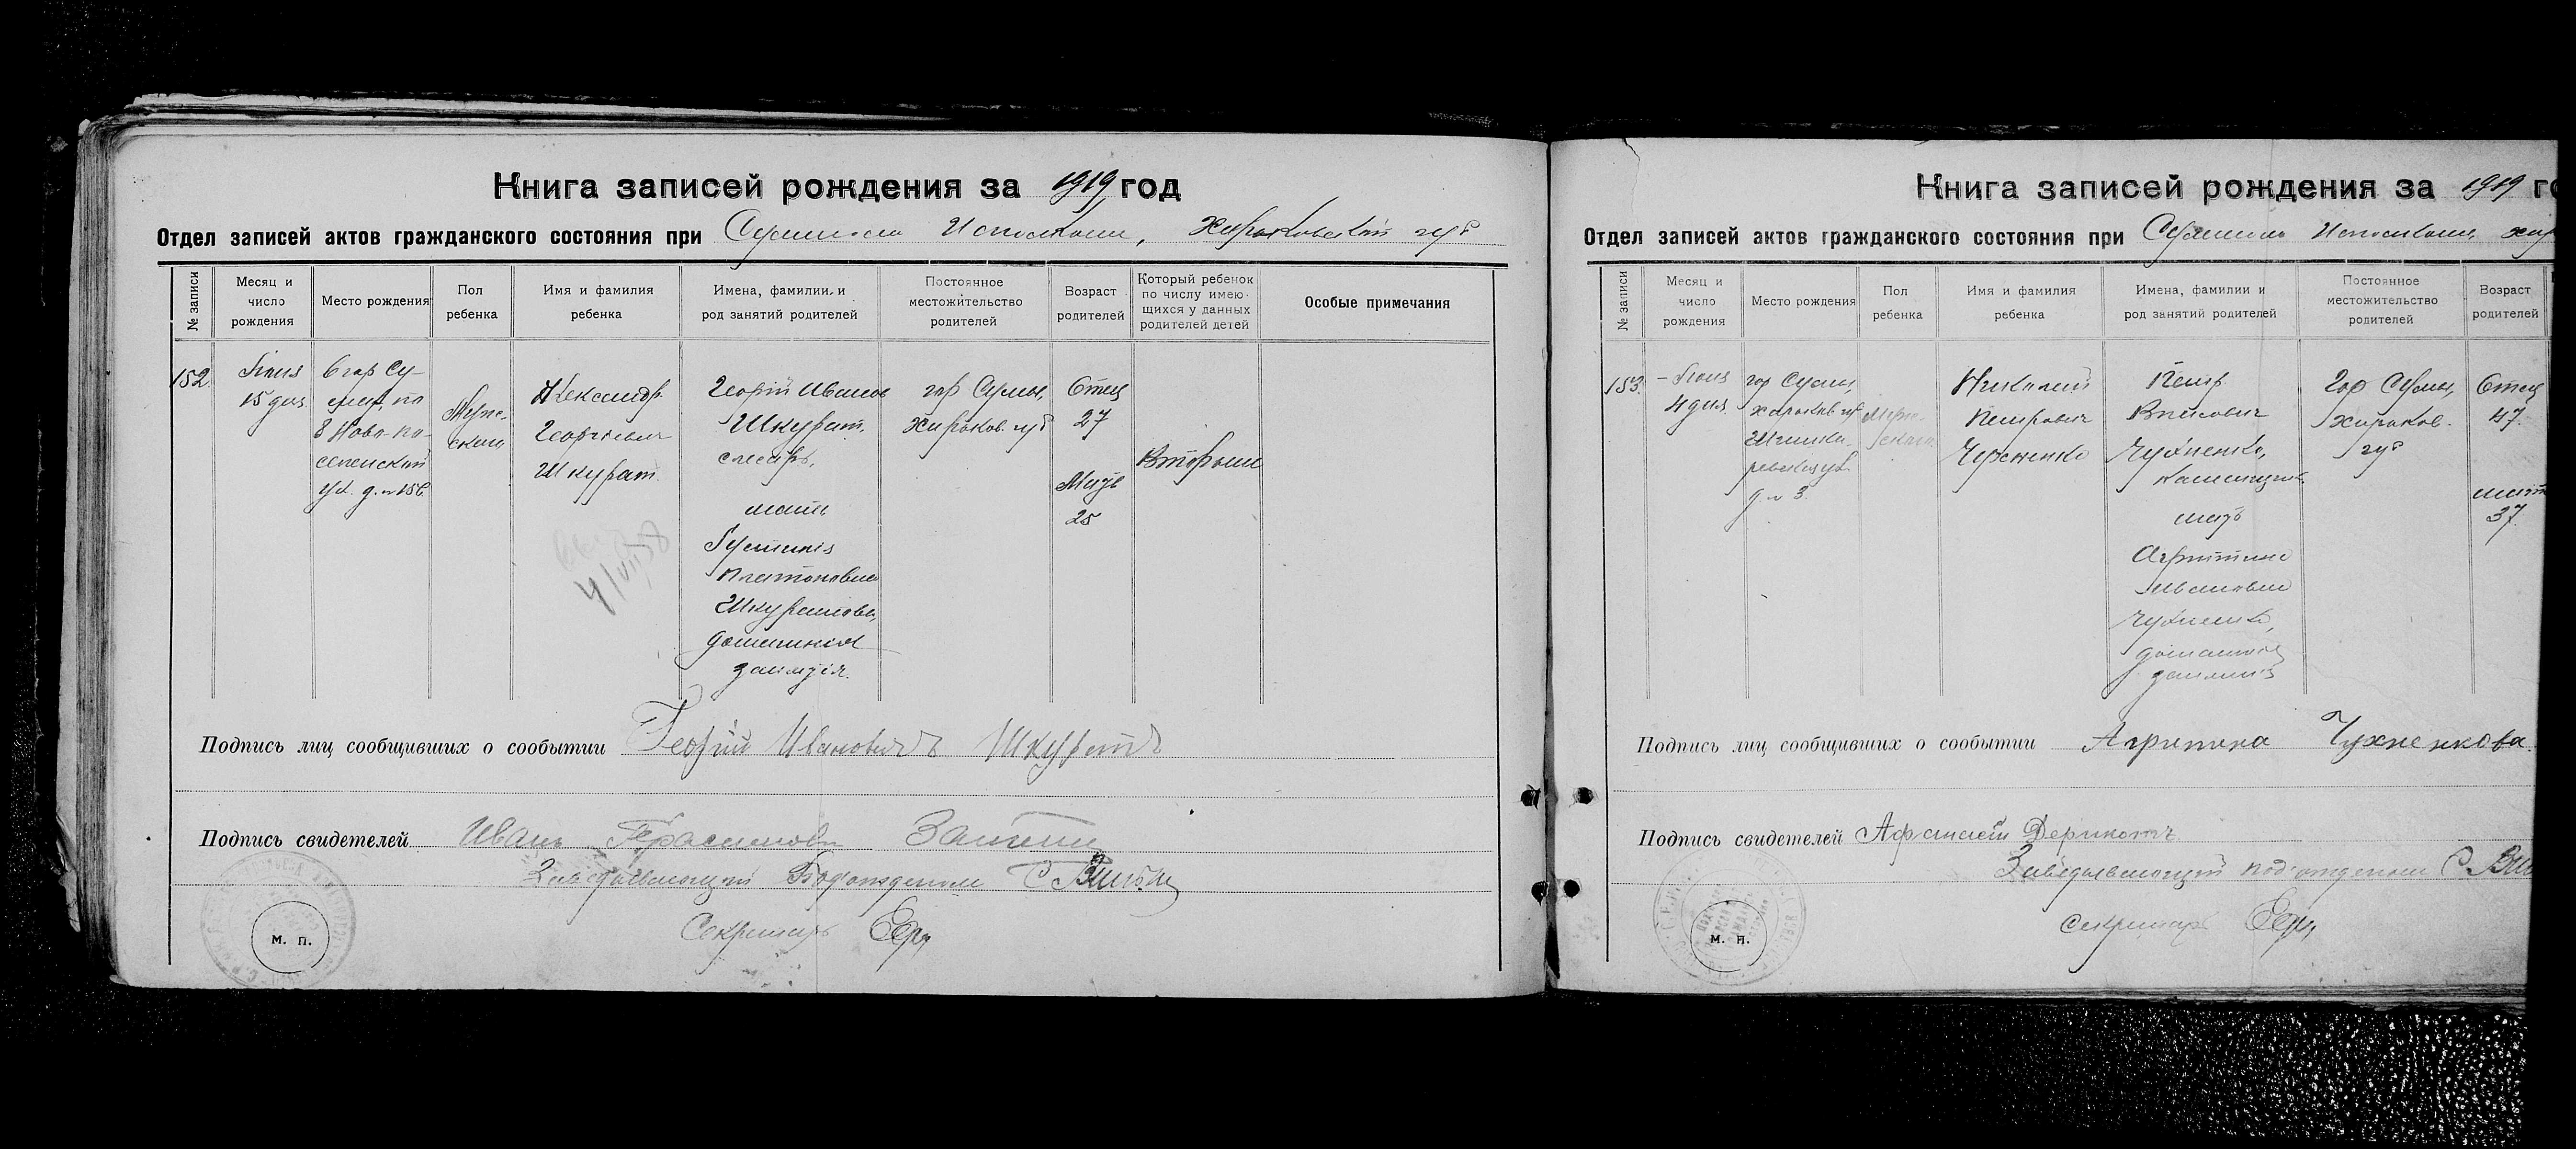 Книга записей рождения за 1919 год
Отдел записей актов гражданского состояния при Сумском Исполкоме, Харьковской губ
№ записи
Месяц и число рождения
Место рождения
Пол ребенка
Имя и фамилия ребенка
Имена, фамилии и род занятий родителей
Постоянное местожительство родителей
Возраст родителей
Который ребенок по числу имеющихся у данных родителей детей
Особые примечания
152
15 дня
ул. д. №
Мужс-
ской
Александр
Георгіевич
Шкурат
Георгій Иванов
Шкурат,
слесарь,
мать
Платоновна
Шкуратова,
домашнія
занятія.
гор Сумы,
Харьков. губ
Отец
27
Мать
25
Вторым
Подпись лиц сообщивших о сообытии Георгий Ивановичъ Шкуратъ
Подпись свидетелей Иванъ
Заведывающий Подотделом
Секретарь
м. п.
Книга записей рождения за 1919
Отдел записей актов гражданского состояния при Сумском Исполкоме,
№ записи
Месяц и число рождения
Место рождения
Пол ребенка
Имя и фамилия ребенка
Имена, фамилии и род занятий родителей
Постоянное местожительство родителей
Возраст родителей
153
4 дня
гор Сумы,
Харьков губ
д. № 3
Мужс-
ской
Николай
Петрович
Чухненко
Петр
Чухненко,
мать
Агриппина
Ивановна
Чухненко,
домашнія
занятія
Гор Сумы,
Харьков.
губ
Отец
47
мать
37
Подпись лиц сообщивших о сообытии Агрипина Чухненкова
Подпись свидетелей Афанасий
Заведывающий подотделом
Секретарь
м. п.